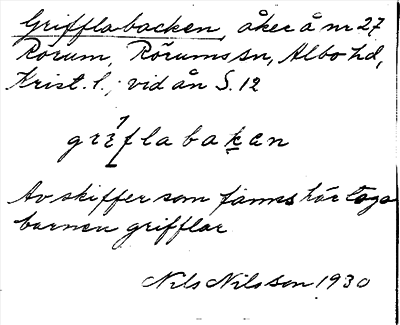 Grifflabacken, åker å nr 27
Rörum, Rörums sn, Albo hd,
Krist. l., vid ån S. 12
grɛflabakan
Av skiffer som fanns här toga
barnen grifflar
Nils Nilsson 1930